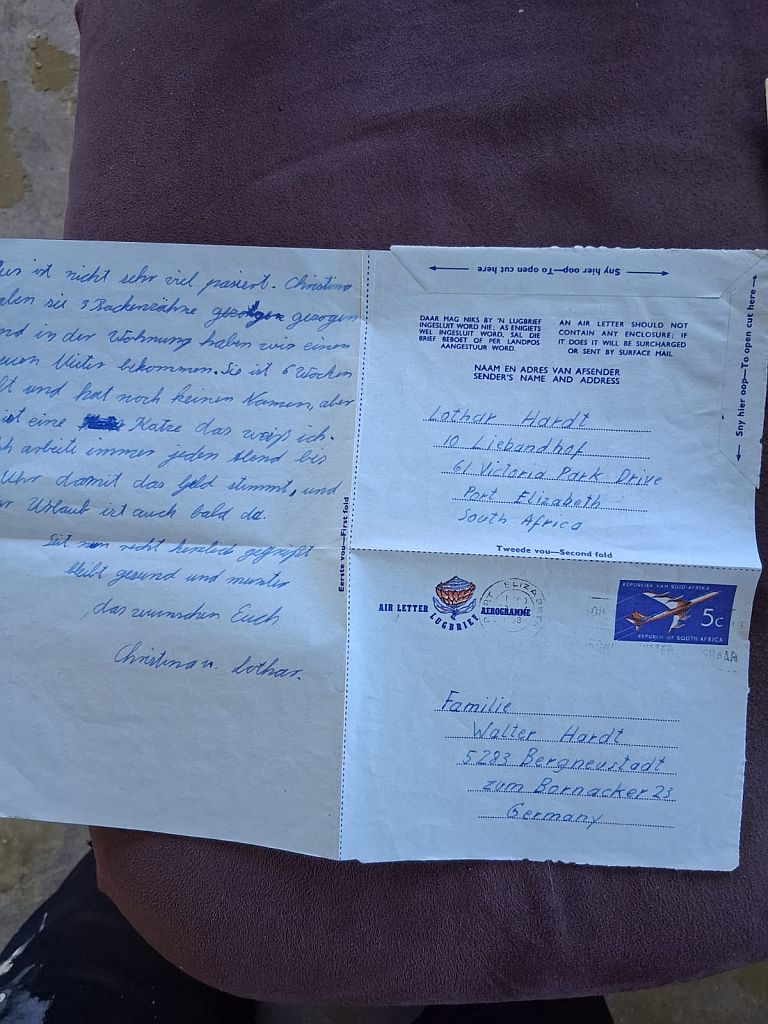 ist nicht sehr viel pasiert. Christina
sie 3 Backenzähne gezogen gezogen
in der Wohnung haben wir einen
Mieter bekommen. Sie ist 6 Wochen
und hat noch keinen Namen, aber
ist eine Katze das weiß ich.
arbeite immer jeden Abend bis
Uhr damit das Geld stimmt, und
Urlaub ist auch bald da.
Seit nun recht herzlich gegrüßt
bleibt gesund und munter
das wünschen Euch
Christina u. Lothar.
Eerste vou—First fold
Sny hier oop—To open cut here
Sny hier oop—To open cut here
DAAR MAG NIKS BY 'N LUGBRIEF
INGESLUIT WORD NIE; AS ENIGIETS
WEL INGESLUIT WORD, SAL DIE
BRIEF BEBOET OF PER LANDPOS
AANGESTUUR WORD.
AN AIR LETTER SHOULD NOT
CONTAIN ANY ENCLOSURE; IF
IT DOES IT WILL BE SURCHARGED
OR SENT BY SURFACE MAIL.
NAAM EN ADRES VAN AFSENDER
SENDER'S NAME AND ADDRESS
Lothar Hardt
10 Liebandhof
61 Victoria Park Drive
Port Elizabeth
South Africa
Tweede vou—Second fold
AIR LETTER
LUGBRIEF
AEROGRAMME
REPUBLIEK VAN SUID-AFRIKA
5c
REPUBLIC OF SOUTH AFRICA
Familie
Walter Hardt
5283 Bergneustadt
zum Bornacker 23
Germany